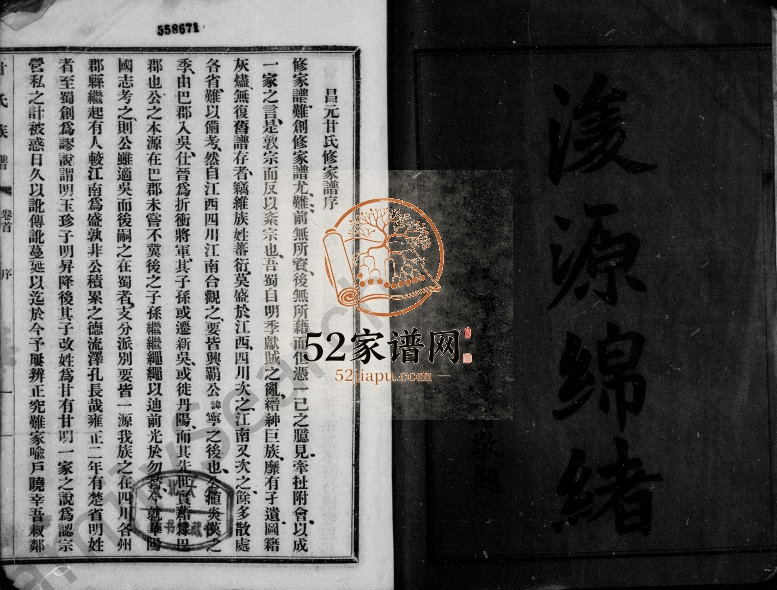 濬源綿緒
敬題
558671
昌元甘氏修家譜序
修家譜難創修家譜尤難前無所資後無所藉而任憑一己之臆見牽扯附會以成
一家之言是敦宗而反以紊宗也吾蜀自明季獻賊之亂縉紳巨族靡有孑遺圖籍
灰燼無復舊譜存者竊維族姓蕃衍莫盛於江西四川次之江南又次之餘多散處
各省難以備考然自江西四川江南合觀之要皆興霸公諱寧之後也公
季由巴郡入吳仕晉爲折衝將軍其子孫或遷新吳或徙丹陽而其先世實
郡也公之本源在巴郡未嘗不冀後之子孫繼繼繩繩以迪前光於勿替
國志考之則公雖適吳而後嗣之在蜀者支分派別要皆一源我族之在四川各州
郡縣繼起有人較江南爲盛孰非公積累之德流澤孔長哉雍正二年有楚省明姓
者至蜀創爲謬說謂明玉珍子明昇降後其子改姓爲甘有甘明一家之說爲認宗
營私之計被惑日久以訛傳訛蔓延以迄於今予屢辨正究難家喻戶曉幸吾叔鄰
甘氏族譜
卷首
序
一
52家谱网
52jiapu.com